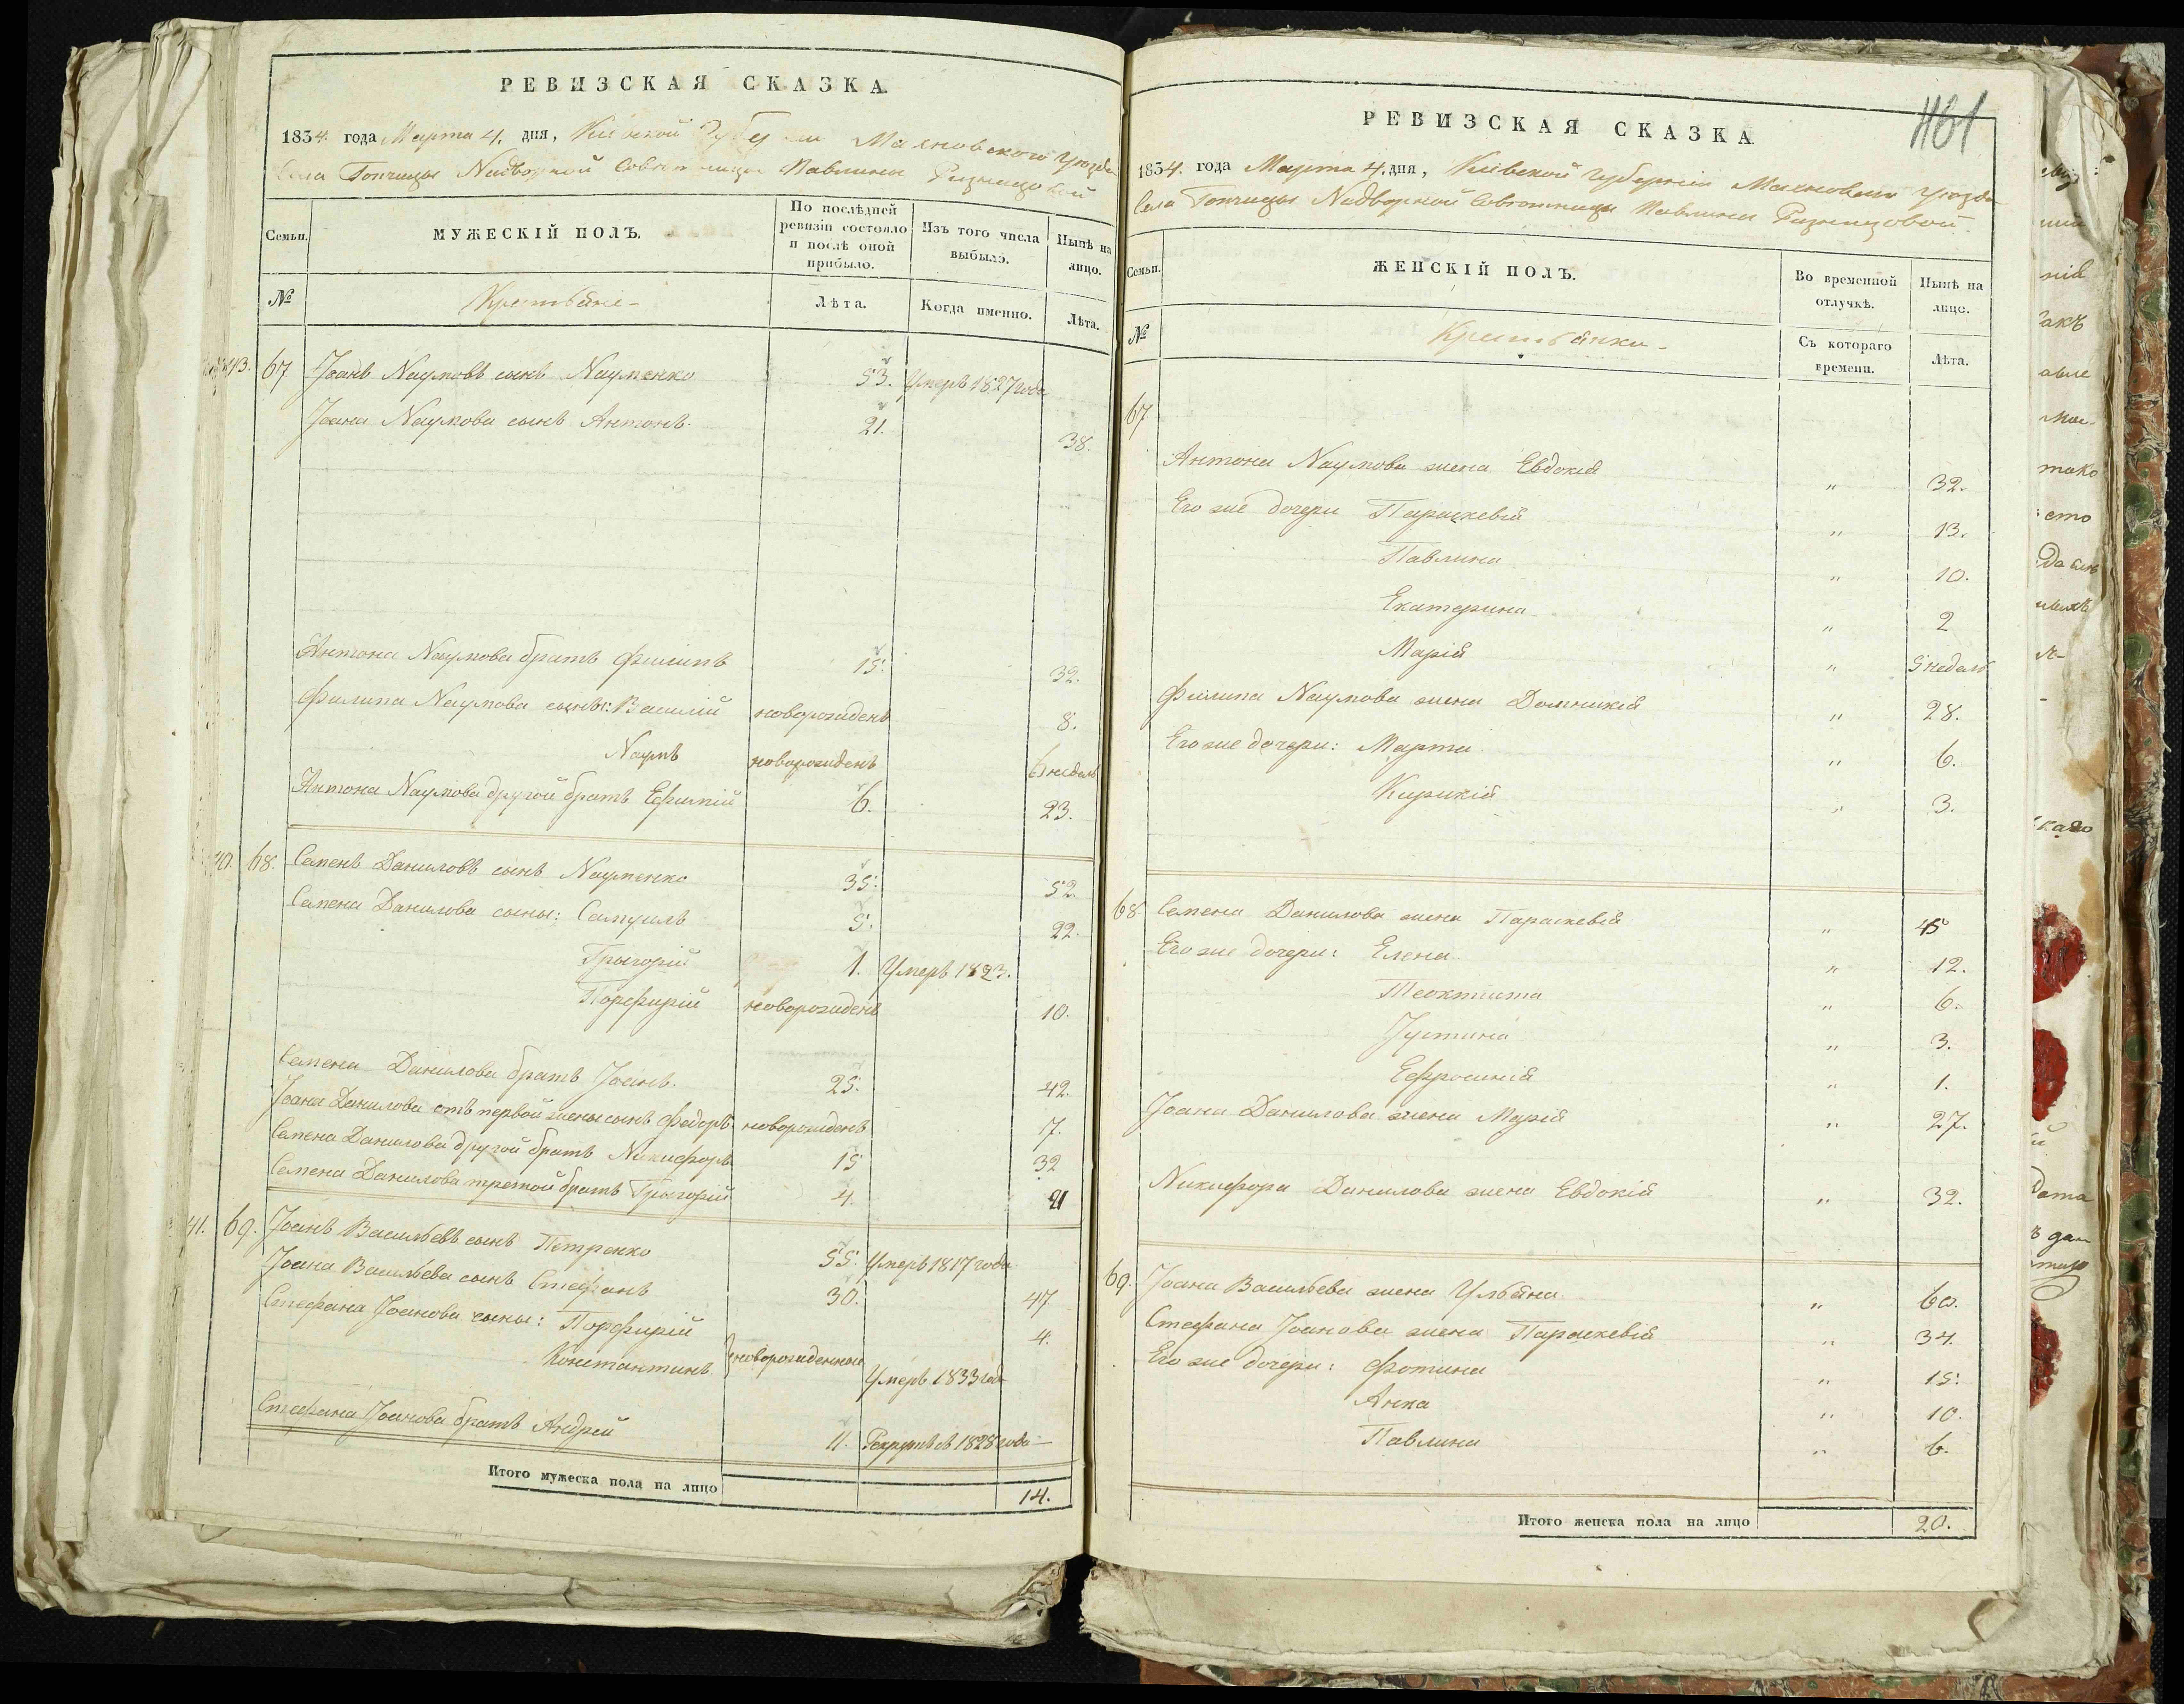 РЕВИЗСКАЯ СКАЗКА
1834. года Марта 4. дня, Кіевской Губерніи Махновского уѣзда
Села Топчицы Надворной Совѣтницы Павлины
Семьи.
МУЖЕСКІЙ ПОЛЪ.
По послѣдней ревизіи состояло и послѣ оной прибыло.
Изъ того числа выбыло.
Нынѣ на лицо.
№
Крестьяне
Лѣта.
Когда именно.
Лѣта.
67 Іоанъ Наумовъ сынъ Науменко 53. Умеръ 1827 года
Іоана Наумова сынъ Антонъ. 21. 38.
Антона Наумова братъ Филипъ 15. 32.
Филипа Наумова сыны: Василій новорожденъ 8.
Наумъ новорожденъ 6 недель
Антона Наумова другой братъ Ефимій 6. 23.
40. 68. Семенъ Даниловъ сынъ Науменко 35. 52
Семена Данилова сыны: Самуилъ 5. 22.
Григорій 1. Умеръ 1823.
Порфирій новорожденъ 10.
Семена Данилова братъ Іоанъ. 25. 42.
Іоана Данилова отъ первой жены сынъ Федоръ новорожденъ 7.
Семена Данилова другой братъ Никифоръ 15 32
Семена Данилова третой братъ Григорій 4. 21
41. 69. Іоанъ Васильевъ сынъ Петренко 55. Умеръ 1817 года
Іоана Васильева сынъ Стефанъ 30. 47
Стефана Іоанова сыны: Порфирій 4.
Константинъ новорожденныи Умеръ 1833 года
Стефана Іоанова братъ Андрей 11. Рекрутъ съ 1828 года
Итого мужеска пола на лицо 14.
1161
РЕВИЗСКАЯ СКАЗКА
1834. года Марта 4. дня, Кіевской Губерніи Махновского уѣзда
Села Топчицы Надворной Совѣтницы Павлины
Семьи.
ЖЕНСКІЙ ПОЛЪ.
Во временной отлучкѣ.
Нынѣ на лицо.
№
Крестьянки
Съ котораго времени.
Лѣта.
67
Антона Наумова жена Евдокія " 32.
Его же дочери Параскевія " 13.
Павлина " 10.
Екатерина " 2
Марія " 5 недель
Филипа Наумова жена Домникія " 28.
Его же дочери: Марта " 6.
Кирикія " 3.
68. Семена Данилова жена Параскевія " 45
Его же дочери: Елена " 12.
Теоктиста " 6.
Іустина " 3.
Ефросинія " 1.
Іоана Данилова жена Марія " 27.
Никифора Данилова жена Евдокія " 32.
69. Іоана Васильева жена Ульяна " 60.
Стефана Іоанова жена Параскевія " 34.
Его же дочери: Фотина " 15.
Анна " 10.
Павлина " 6.
Итого женска пола на лицо 20.